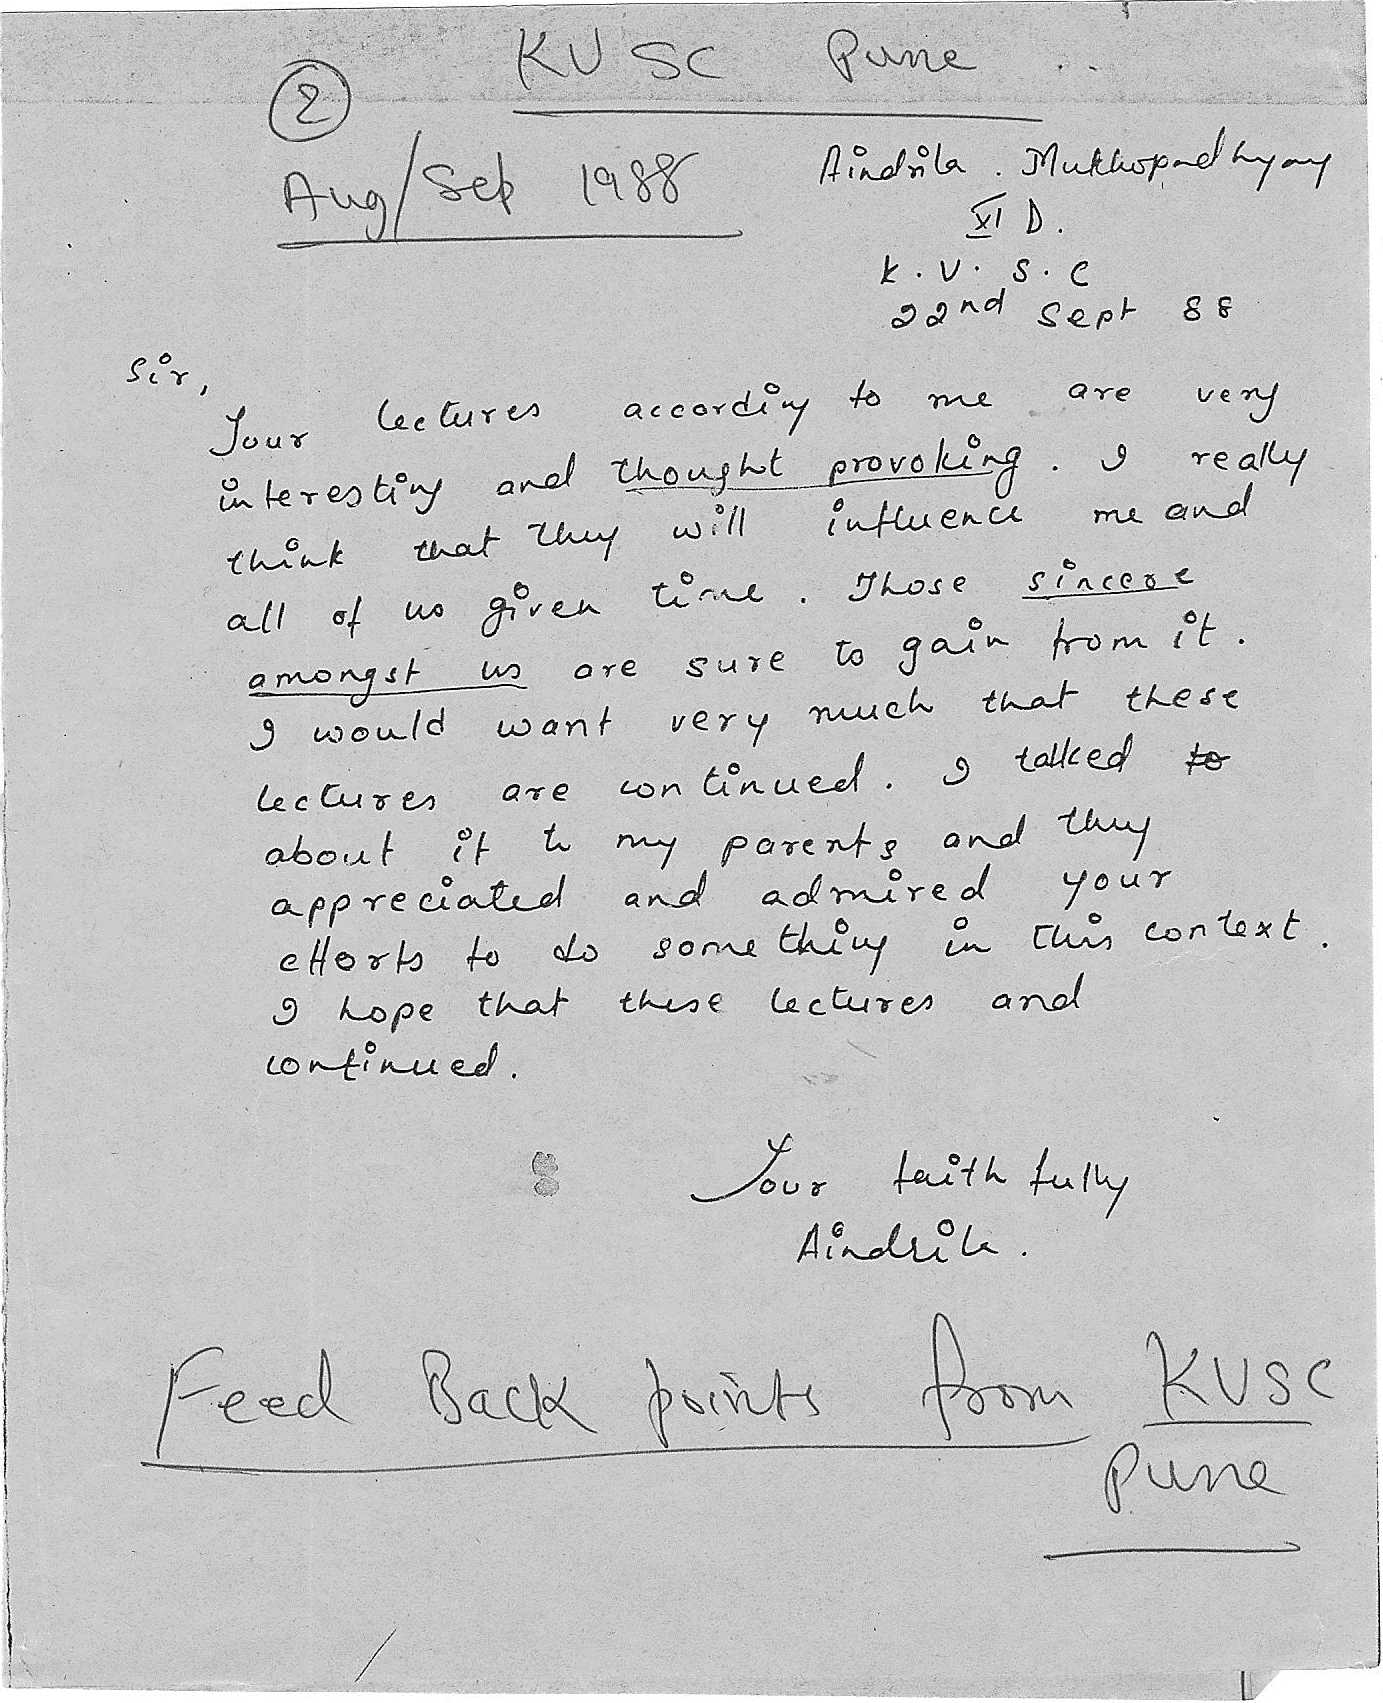 KVSC Pune
2
Aug/Sep 1988
Aindrila. Mukhopadhyay
XI D.
K. V. S. C
22nd Sept 88
Sir,
Your lectures according to me are very
interesting and thought provoking. I really
think that they will influence me and
all of us given time. Those sincere
amongst us are sure to gain from it.
I would want very much that these
lectures are continued. I talked to
about it to my parents and they
appreciated and admired your
efforts to do something in this context.
I hope that these lectures and
continued.
Your faithfully
Aindrila.
Feed Back points from KVSC
Pune